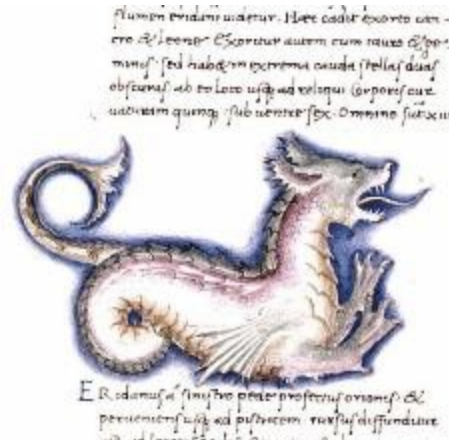 flumen eridani uidetur. Haec cadit exorto can-
cro & leone. Exoritur autem cum tauro & ge-
minis. sed habet in extrema cauda stellas duas
obscuras. ab eo loco usq; ad reliqui corporis cur
uaturam quinq; sub uentre sex. Omnino sūt
ERidanus a sinistro pede profectus orionis. &
perueniens usq; ad pistricem rursus diffunditur